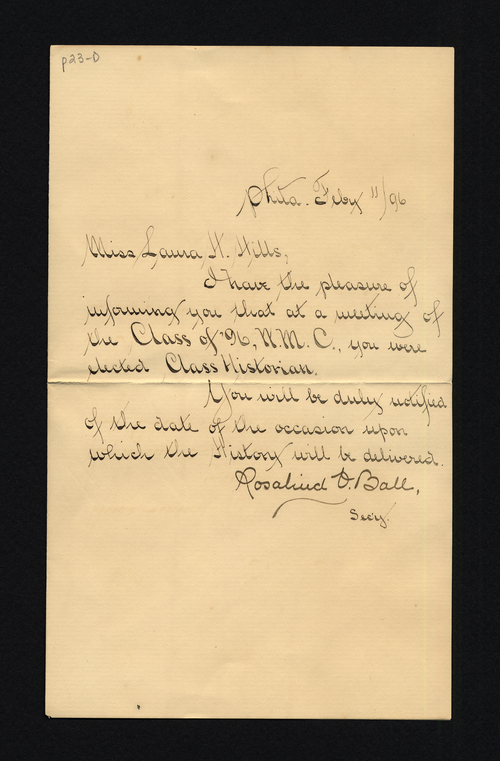 p23-D
Phila. Feby 11/96
Miss Laura H. Hills,
I have the pleasure of
informing you that at a meeting of
the Class of '96, W.M.C., you were
elected Class Historian.
You will be duly notified
of the date of the occasion upon
which the History will be delivered.
Rosalind D. Ball,
Secy.